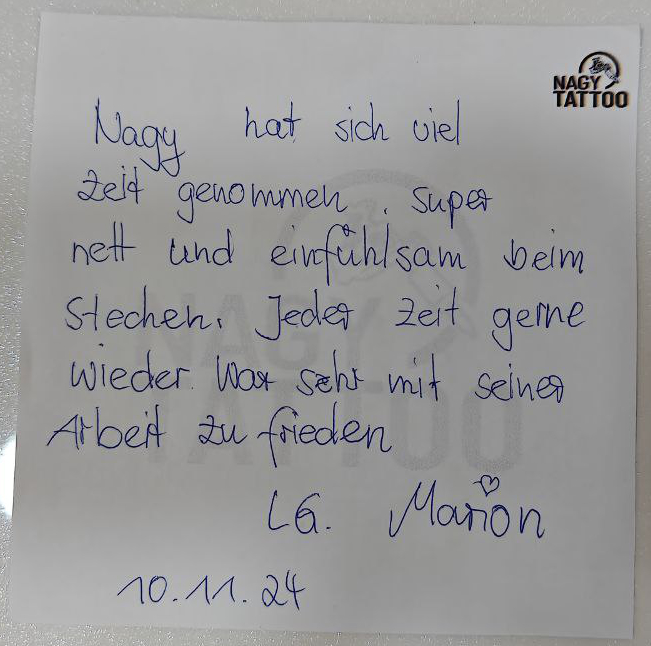 NAGY
TATTOO
Nagy hat sich viel
Zeit genommen. Super
nett und einfühlsam beim
Stechen. Jeder Zeit gerne
wieder. War sehr mit seiner
Arbeit zu frieden
LG. Marion
10.11.24
NAGY
TATTOO